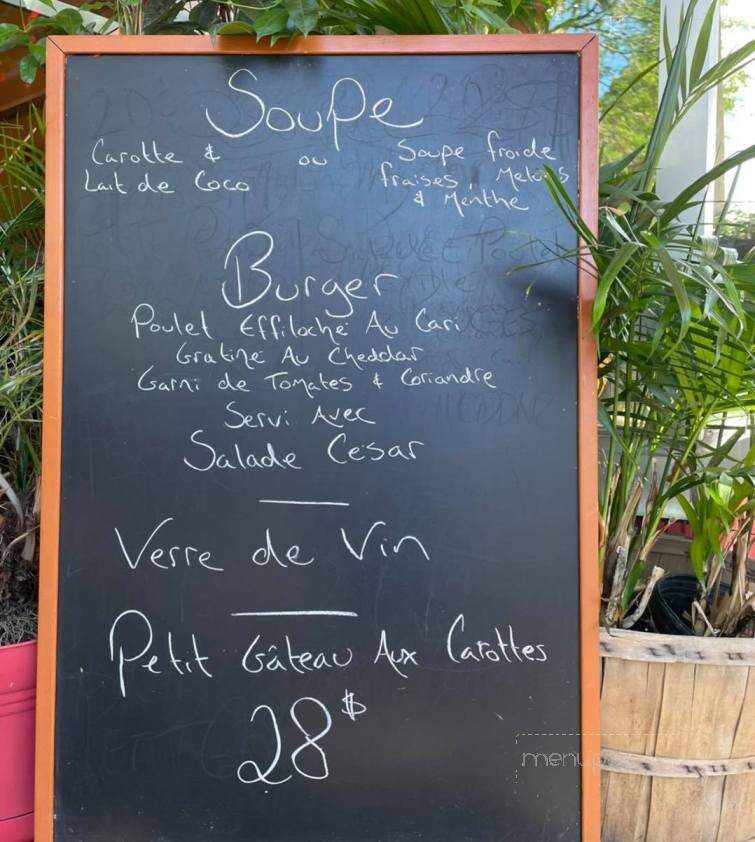 Soupe
Carotte & Lait de Coco
ou
Soupe froide fraises, Melons & Menthe
Burger
Poulet Effiloché Au Cari
Gratiné Au Cheddar
Garni de Tomates & Coriandre
Servi Avec
Salade César
Verre de Vin
Petit Gâteau Aux Carottes
28$